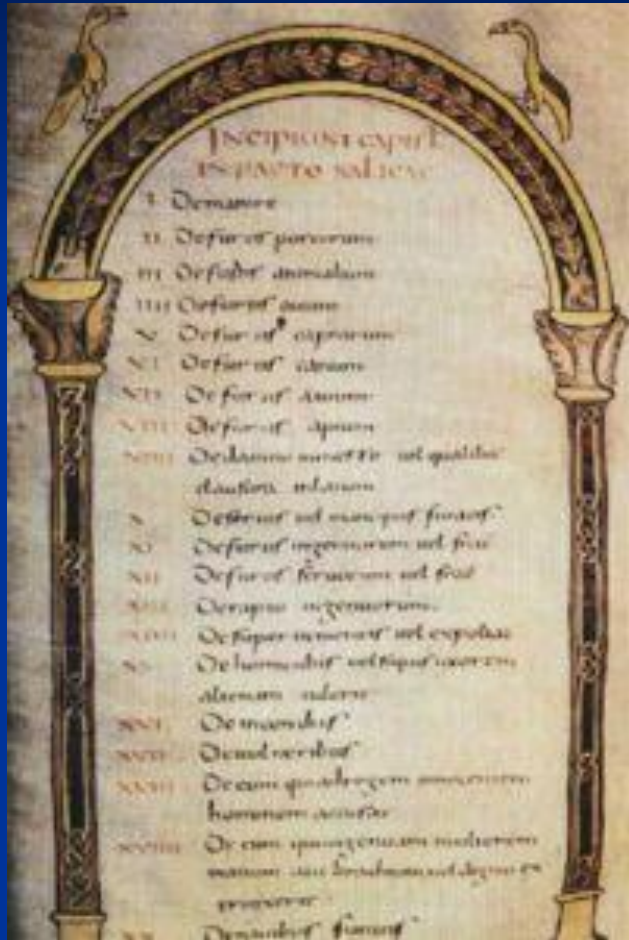 INCIPIUNT CAPIT
IN PACTO SALICAE
I De mannire
II De furtis porcorum
III De furtis animalium
IIII De furtis ovium
V De furtis caprarum
VI De furtis canum
VII De furtis avium
VIII De furtis apium
VIIII De damno in vel qualibet
clausura
X De servis vel mancipiis furatis
XI De furtis ingenuorum vel frac
XII De furtis servorum vel frac
XIII De rapto ingenuorum
XIIII De superventis vel expoliat
XV De homicidiis vel si quis uxorem
alienam tulerit
XVI De incendiis
XVII De vulneribus
XVIII De eum qui ad regem innocentem
hominem accusat
XVIIII De eum qui ingenuam mulierem
manum aut brachium vel digitum ex
XX